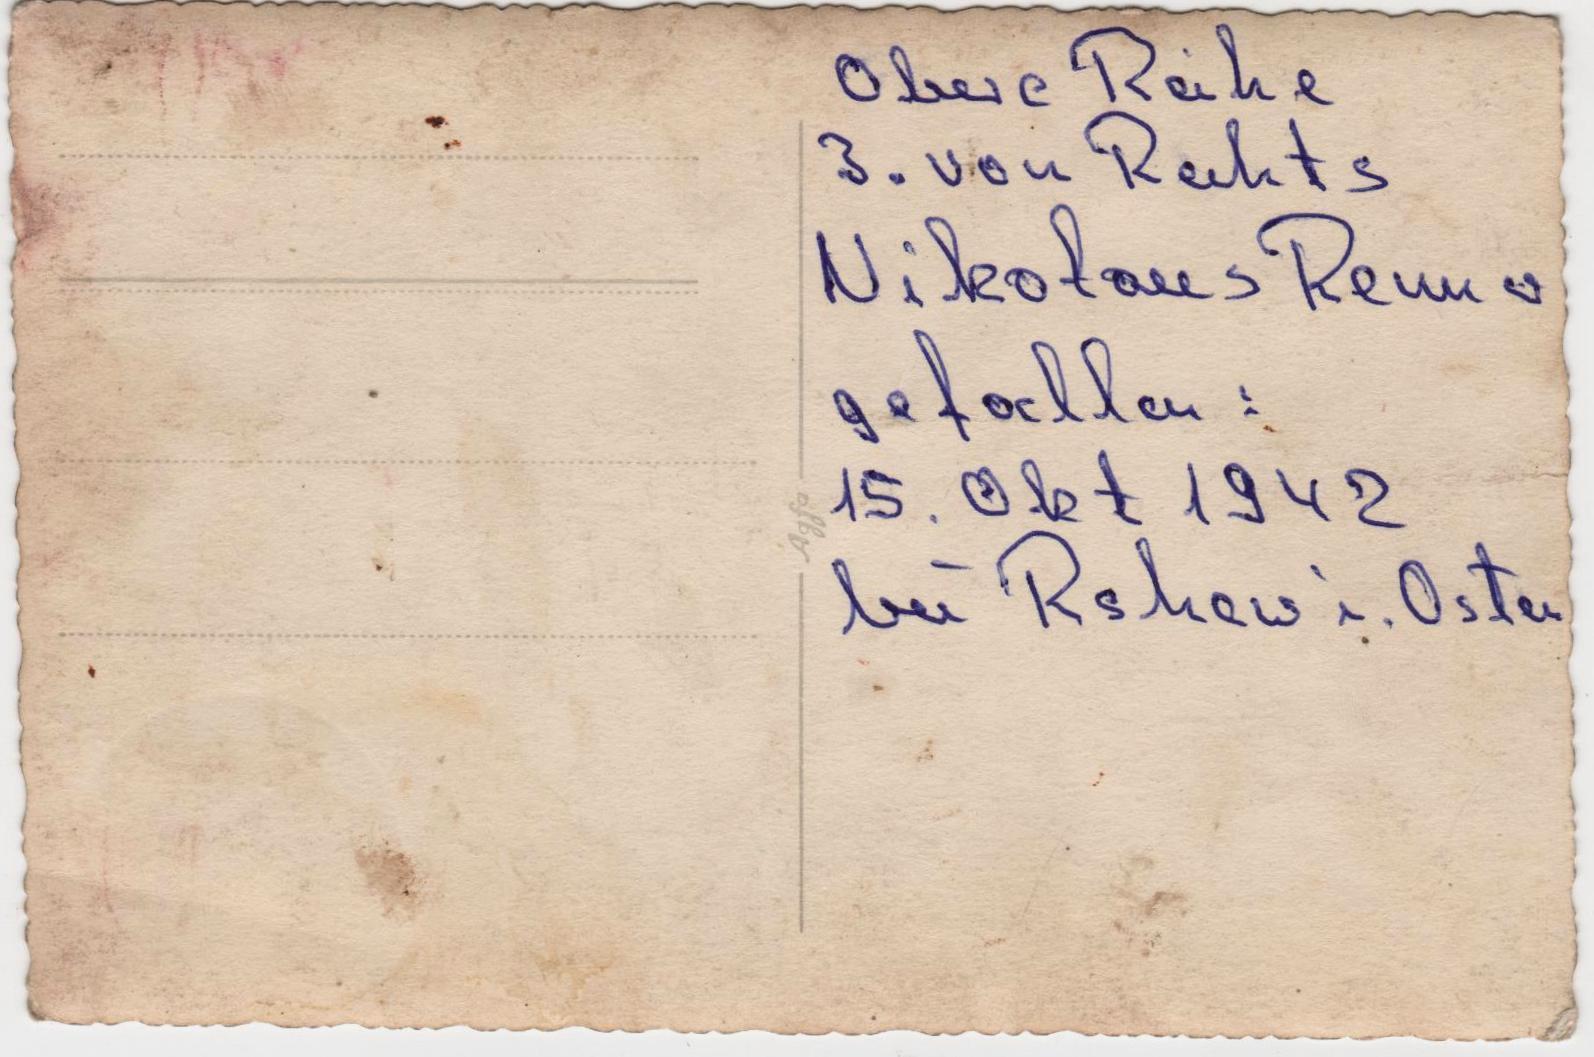 Obere Reihe
3. von Rechts
Nikolaus
gefallen :
15. Okt 1942
bei Rshew i. Osten
Agfa